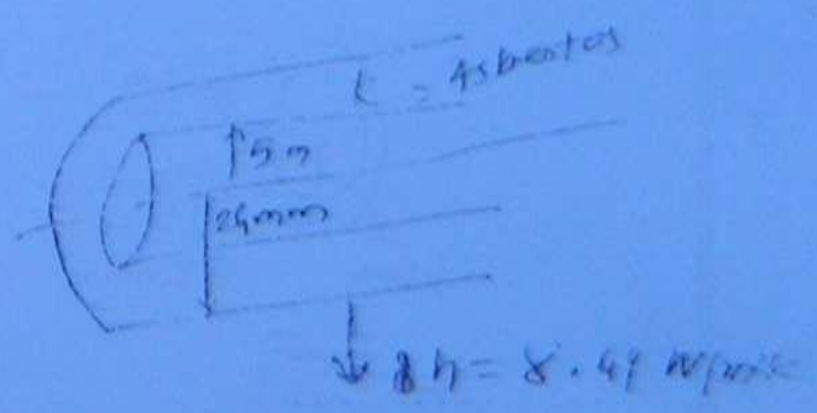 t = Asbestos
5m
24mm
h = 8.49 W/m²k